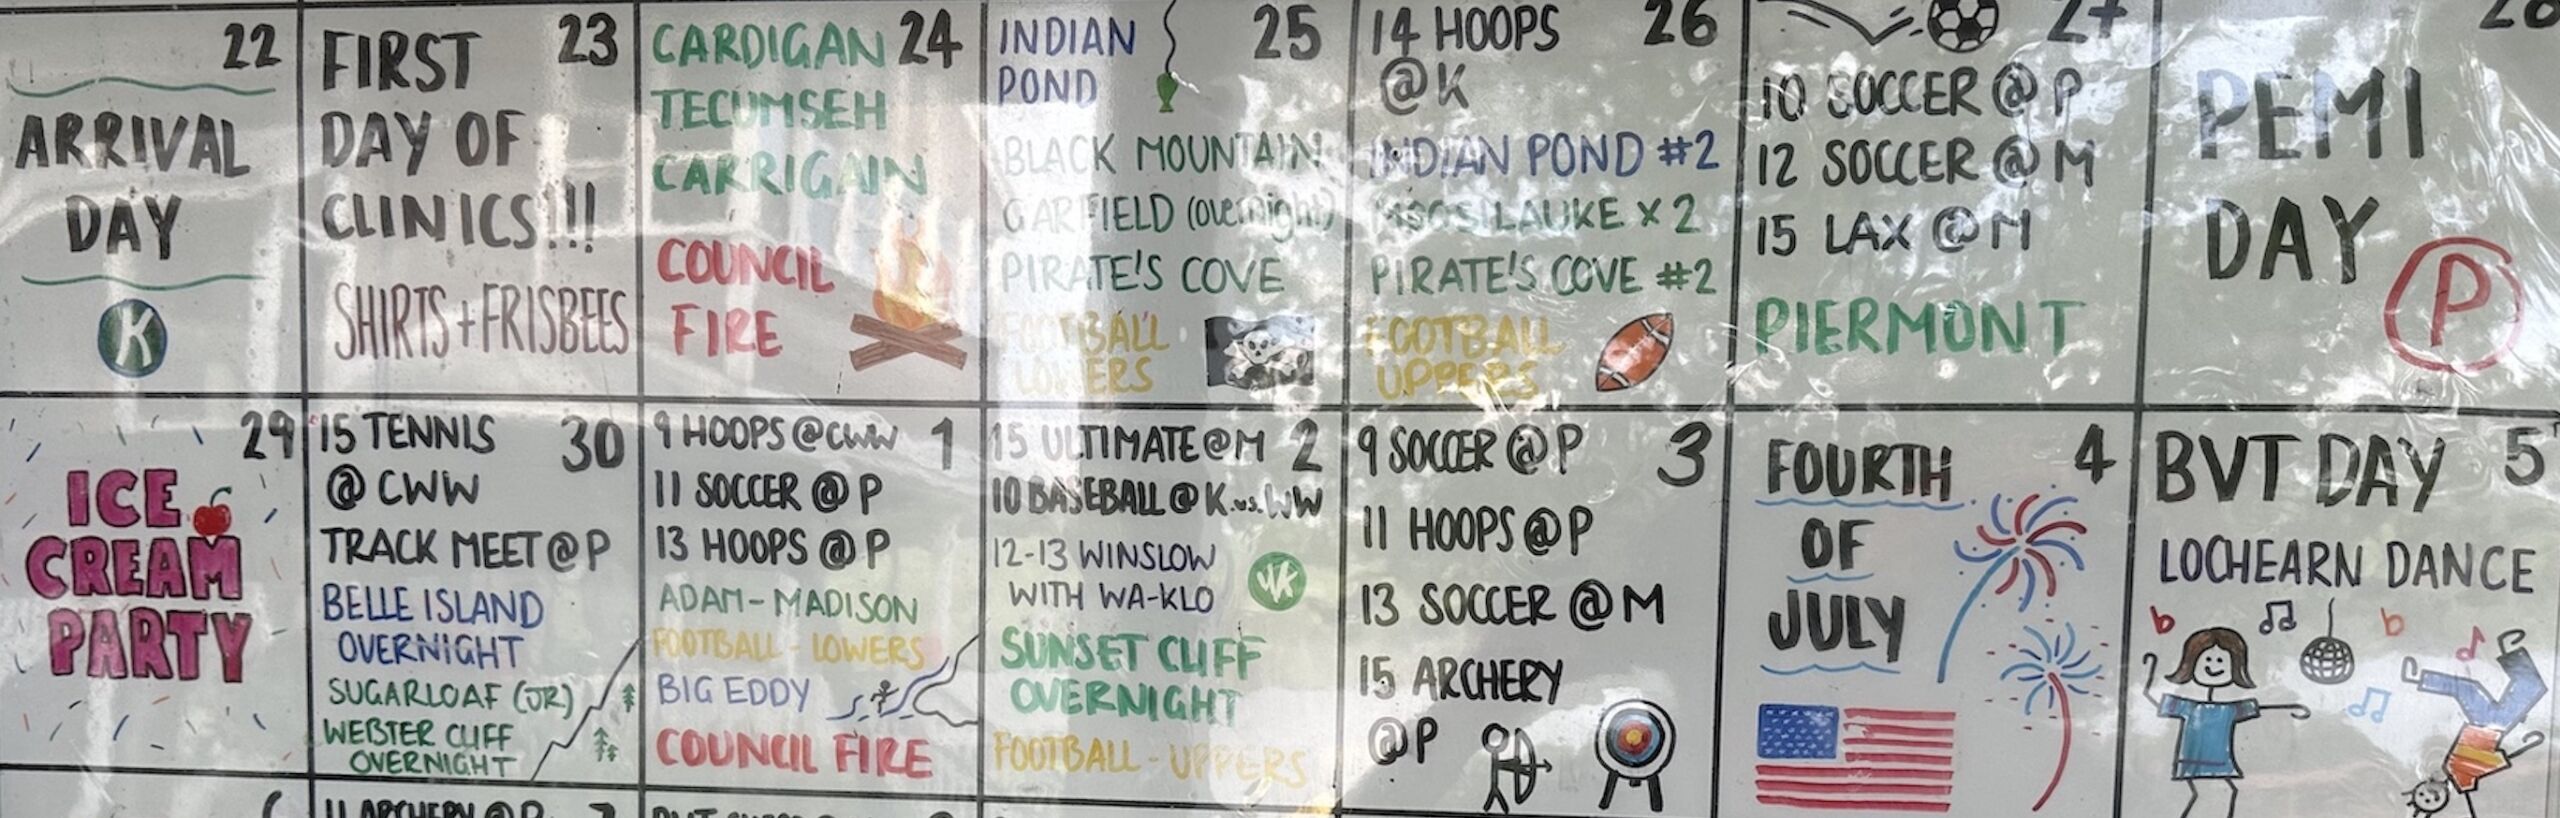 22
ARRIVAL
DAY
K
23
FIRST
DAY OF
CLINICS!!!
SHIRTS + FRISBEES
24
CARDIGAN
TECUMSEH
CARRIGAIN
COUNCIL
FIRE
25
INDIAN
POND
BLACK MOUNTAIN
GARFIELD (overnight)
PIRATE'S COVE
FOOTBALL
LOWERS
26
14 HOOPS
@ K
INDIAN POND #2
MOOSILAUKE x 2
PIRATE'S COVE #2
FOOTBALL
UPPERS
27
10 SOCCER @ P
12 SOCCER @ M
15 LAX @ M
PIERMONT
28
PEMI
DAY
P
29
ICE
CREAM
PARTY
30
15 TENNIS
@ CWW
TRACK MEET @ P
BELLE ISLAND
OVERNIGHT
SUGARLOAF (JR)
WEBSTER CLIFF
OVERNIGHT
1
9 HOOPS @ CWW
11 SOCCER @ P
13 HOOPS @ P
ADAM - MADISON
FOOTBALL - LOWERS
BIG EDDY
COUNCIL FIRE
2
15 ULTIMATE @ M
10 BASEBALL @ K vs. WW
12-13 WINSLOW
WITH WA-KLO
WK
SUNSET CLIFF
OVERNIGHT
FOOTBALL - UPPERS
3
9 SOCCER @ P
11 HOOPS @ P
13 SOCCER @ M
15 ARCHERY
@ P
4
FOURTH
OF
JULY
5
BVT DAY
LOCHEARN DANCE
11 ARCHERY @ P